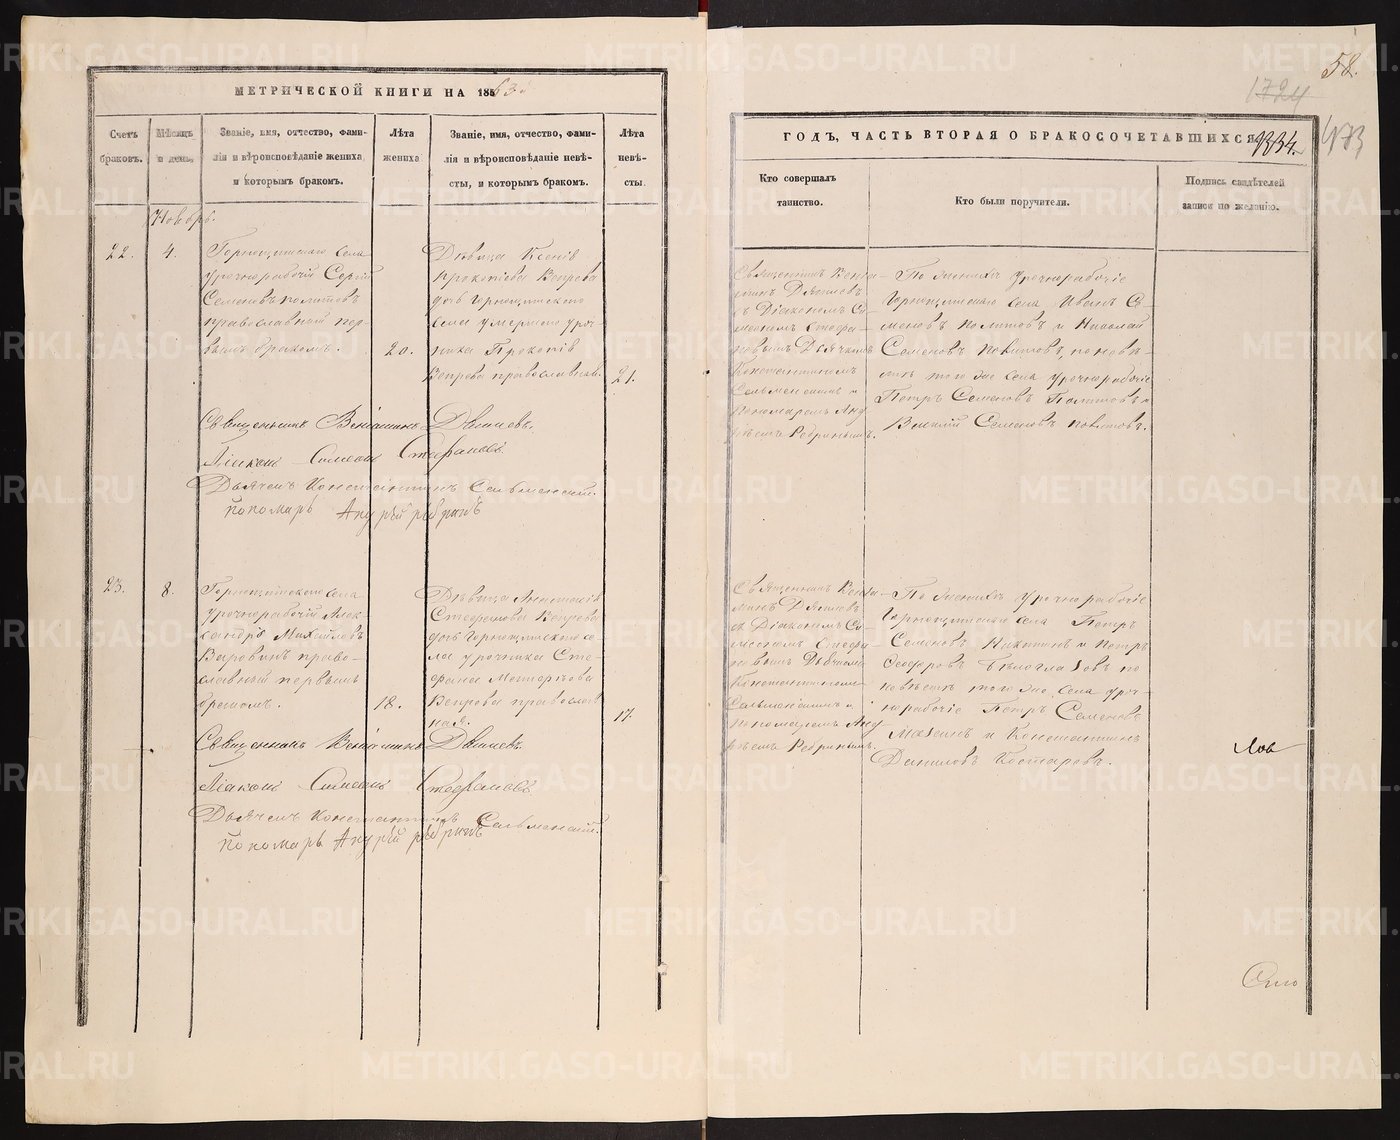 МЕТРИЧЕСКОЙ КНИГИ НА 1863й
Счетъ браковъ.
Мѣсяцъ и день.
Званіе, имя, отчество, фами-
лія и вѣроисповѣданіе жениха
и которымъ бракомъ.
Лѣта
жениха
Званіе, имя, отчество, фами-
лія и вѣроисповѣданіе невѣ-
сты, и которымъ бракомъ.
Лѣта
невѣ-
сты.
Ноябрь.
22.
4.
Горнощитскаго села
урочнорабочій Сергій
Семеновъ Политовъ
православный пер-
вымъ бракомъ.
20.
Дѣвица Ксенія
Прокопіева Вепрева
дочь Горнощитского
села умершаго уроч-
ника Прокопія
Вепрева православная.
21.
Священникъ Веніаминъ Дягилевъ.
Діаконъ Симеонъ Стефановъ
Дьячекъ Константинъ Сельменскій.
Пономарь Андрей Ребринъ
23.
8.
Горнощитскаго села
урочнорабочій Алек-
сандръ Михайловъ
Воровинъ право-
славный первымъ
бракомъ.
18.
Дѣвица Анастасія
Стефанова Вепрева
дочь Горнощитского се-
ла урочника Сте-
фана
Вепрева православ-
ная.
17.
Священникъ Веніаминъ Дягилевъ.
Діаконъ Симеонъ Стефановъ
Дьячекъ Константинъ Сельменскій.
Пономарь Андрей Ребринъ
58.
1724
473
ГОДЪ, ЧАСТЬ ВТОРАЯ О БРАКОСОЧЕТАВШИХСЯ.
1334.
Кто совершалъ
таинство.
Кто были поручители.
Подпись свидѣтелей
записи по желанію.
Священникъ Веніа-
минъ Дягилевъ
съ Діакономъ Си-
меономъ Стефа-
новымъ Дьячкомъ
Константиномъ
Сельменскимъ и
Пономаремъ Анд
реемъ Ребринымъ.
По женихѣ урочнорабочіе
Горнощитскаго села Иванъ Се-
меновъ Политовъ и Николай
Семеновъ Политовъ, по невѣ-
стѣ того же села урочнорабочіе
Петръ Семеновъ Политовъ и
Василій Семеновъ Политовъ.
Священникъ Веніа-
минъ Дягилевъ
съ Діакономъ Си-
меономъ Стефа-
новымъ Дьячкомъ
Константиномъ
Сельменскимъ и
Пономаремъ Анд
реемъ Ребринымъ.
По женихѣ урочнорабочіе
Горнощитскаго села Петръ
Семеновъ Никитинъ и Петръ
Ѳеодоровъ Бѣлоглазовъ по
невѣстѣ того же села уроч-
норабочіе Петръ Семеновъ
Мазинъ и Константинъ
Даниловъ Костаревъ.